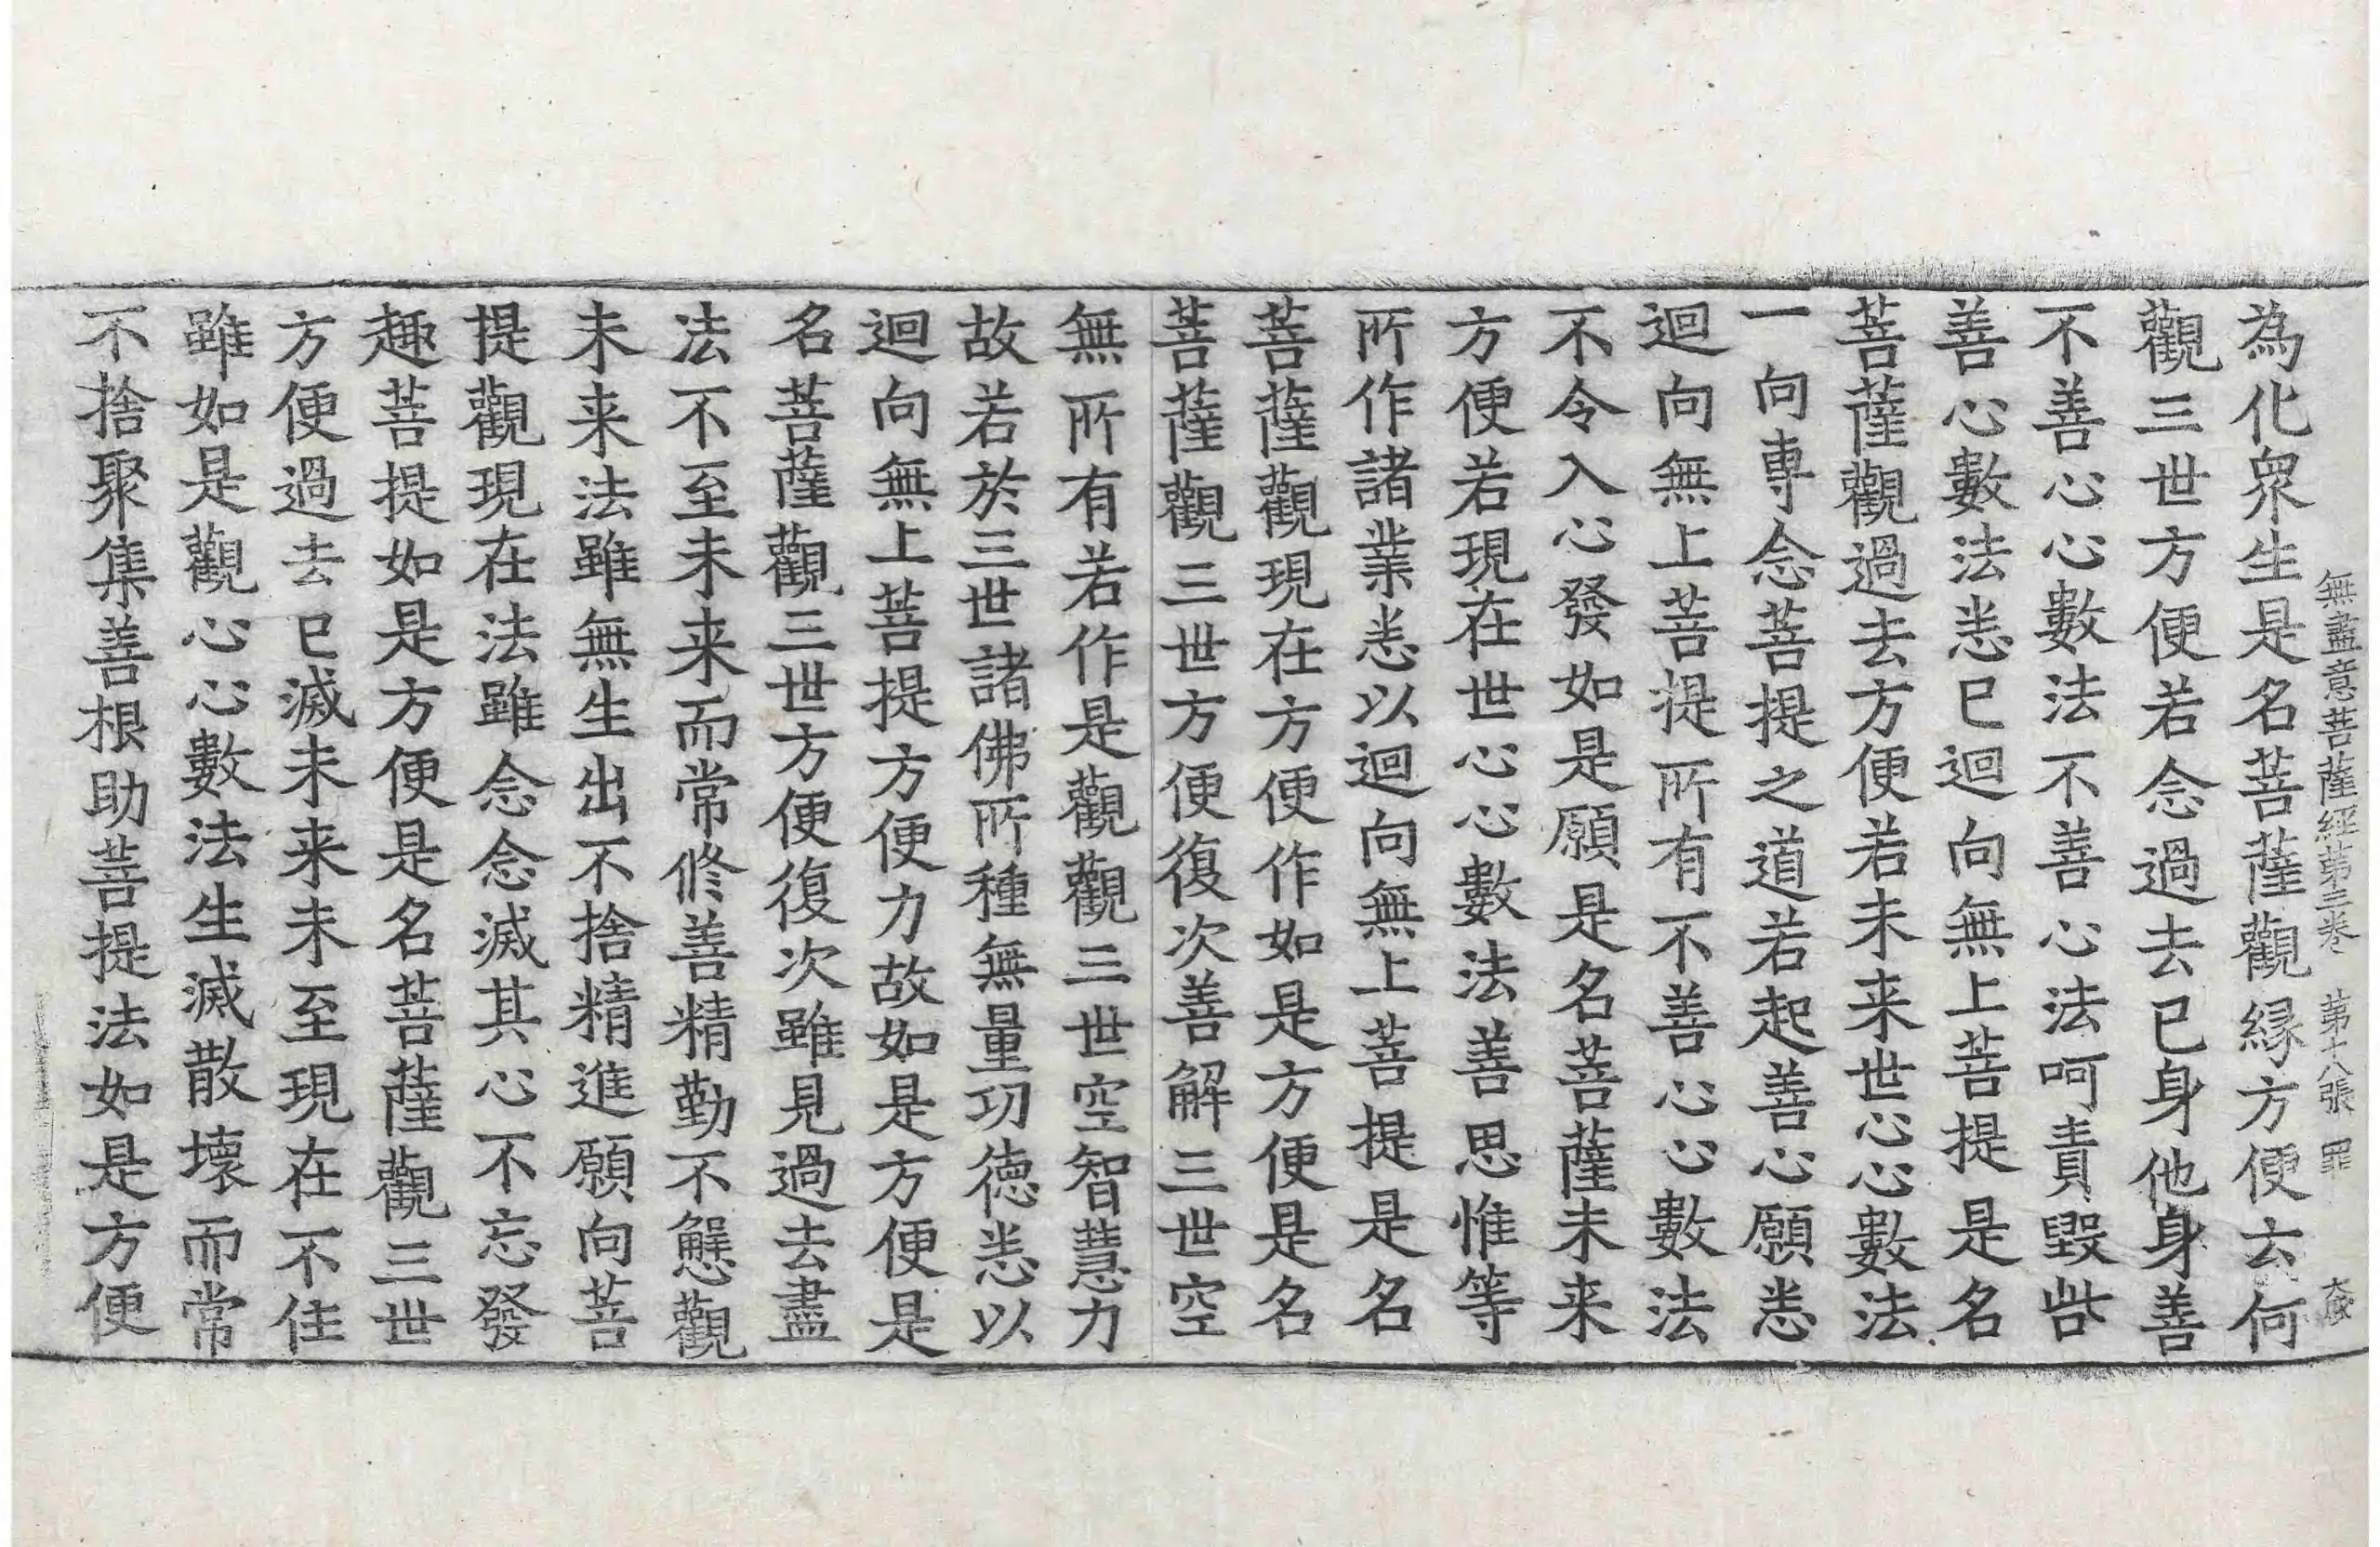 無盡意菩薩經第三卷 第十八張 罪
為化眾生是名菩薩觀緣方便云何
觀三世方便若念過去已身他身善
不善心心數法不善心法呵責毀呰
善心數法悉已迴向無上菩提是名
菩薩觀過去方便若未来世心心數法
一向專念菩提之道若起善心願悉
迴向無上菩提所有不善心心數法
不令入心發如是願是名菩薩未来
方便若現在世心心數法善思惟等
所作諸業悉以迴向無上菩提是名
菩薩觀現在方便作如是方便是名
菩薩觀三世方便復次善解三世空
無所有若作是觀觀三世空智慧力
故若於三世諸佛所種無量功德悉以
迴向無上菩提方便力故如是方便是
名菩薩觀三世方便復次雖見過去盡
法不至未来而常修善精勤不懈觀
未来法雖無生出不捨精進願向菩
提觀現在法雖念念滅其心不忘發
趣菩提如是方便是名菩薩觀三世
方便過去已滅未来未至現在不住
雖如是觀心心數法生滅散壞而常
不捨聚集善根助菩提法如是方便